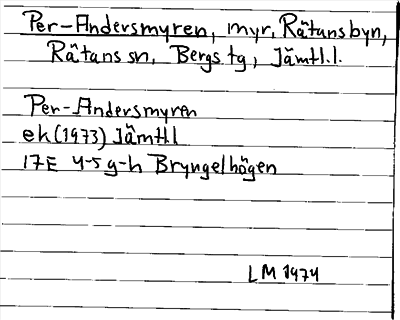 Per-Andersmyren, myr, Rätansbyn,
Rätans sn, Bergs tg, Jämtl.l.
Per-Andersmyren
ek (1973) Jämtl
17E 4-5 g-h Bryngelhögen
LM 1974